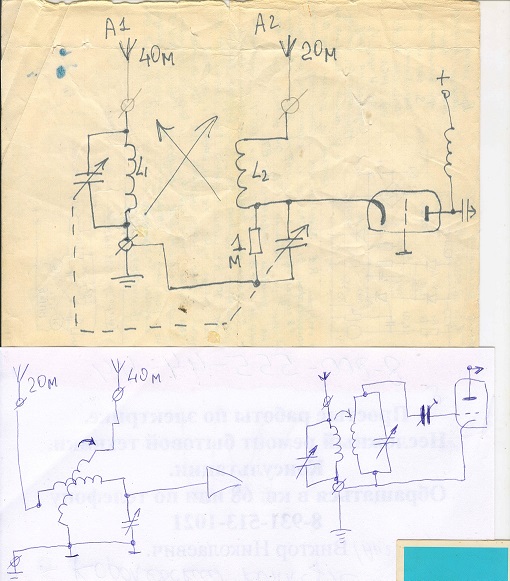 A1
A2
40м
20м
+
L1
L2
1
м
20м
40м
Простые работы по электрике.
Несложный ремонт бытовой техники.
Консультации.
Обращаться в кв. 68 или по телефону
8-931-513-1021
Виктор Николаевич.